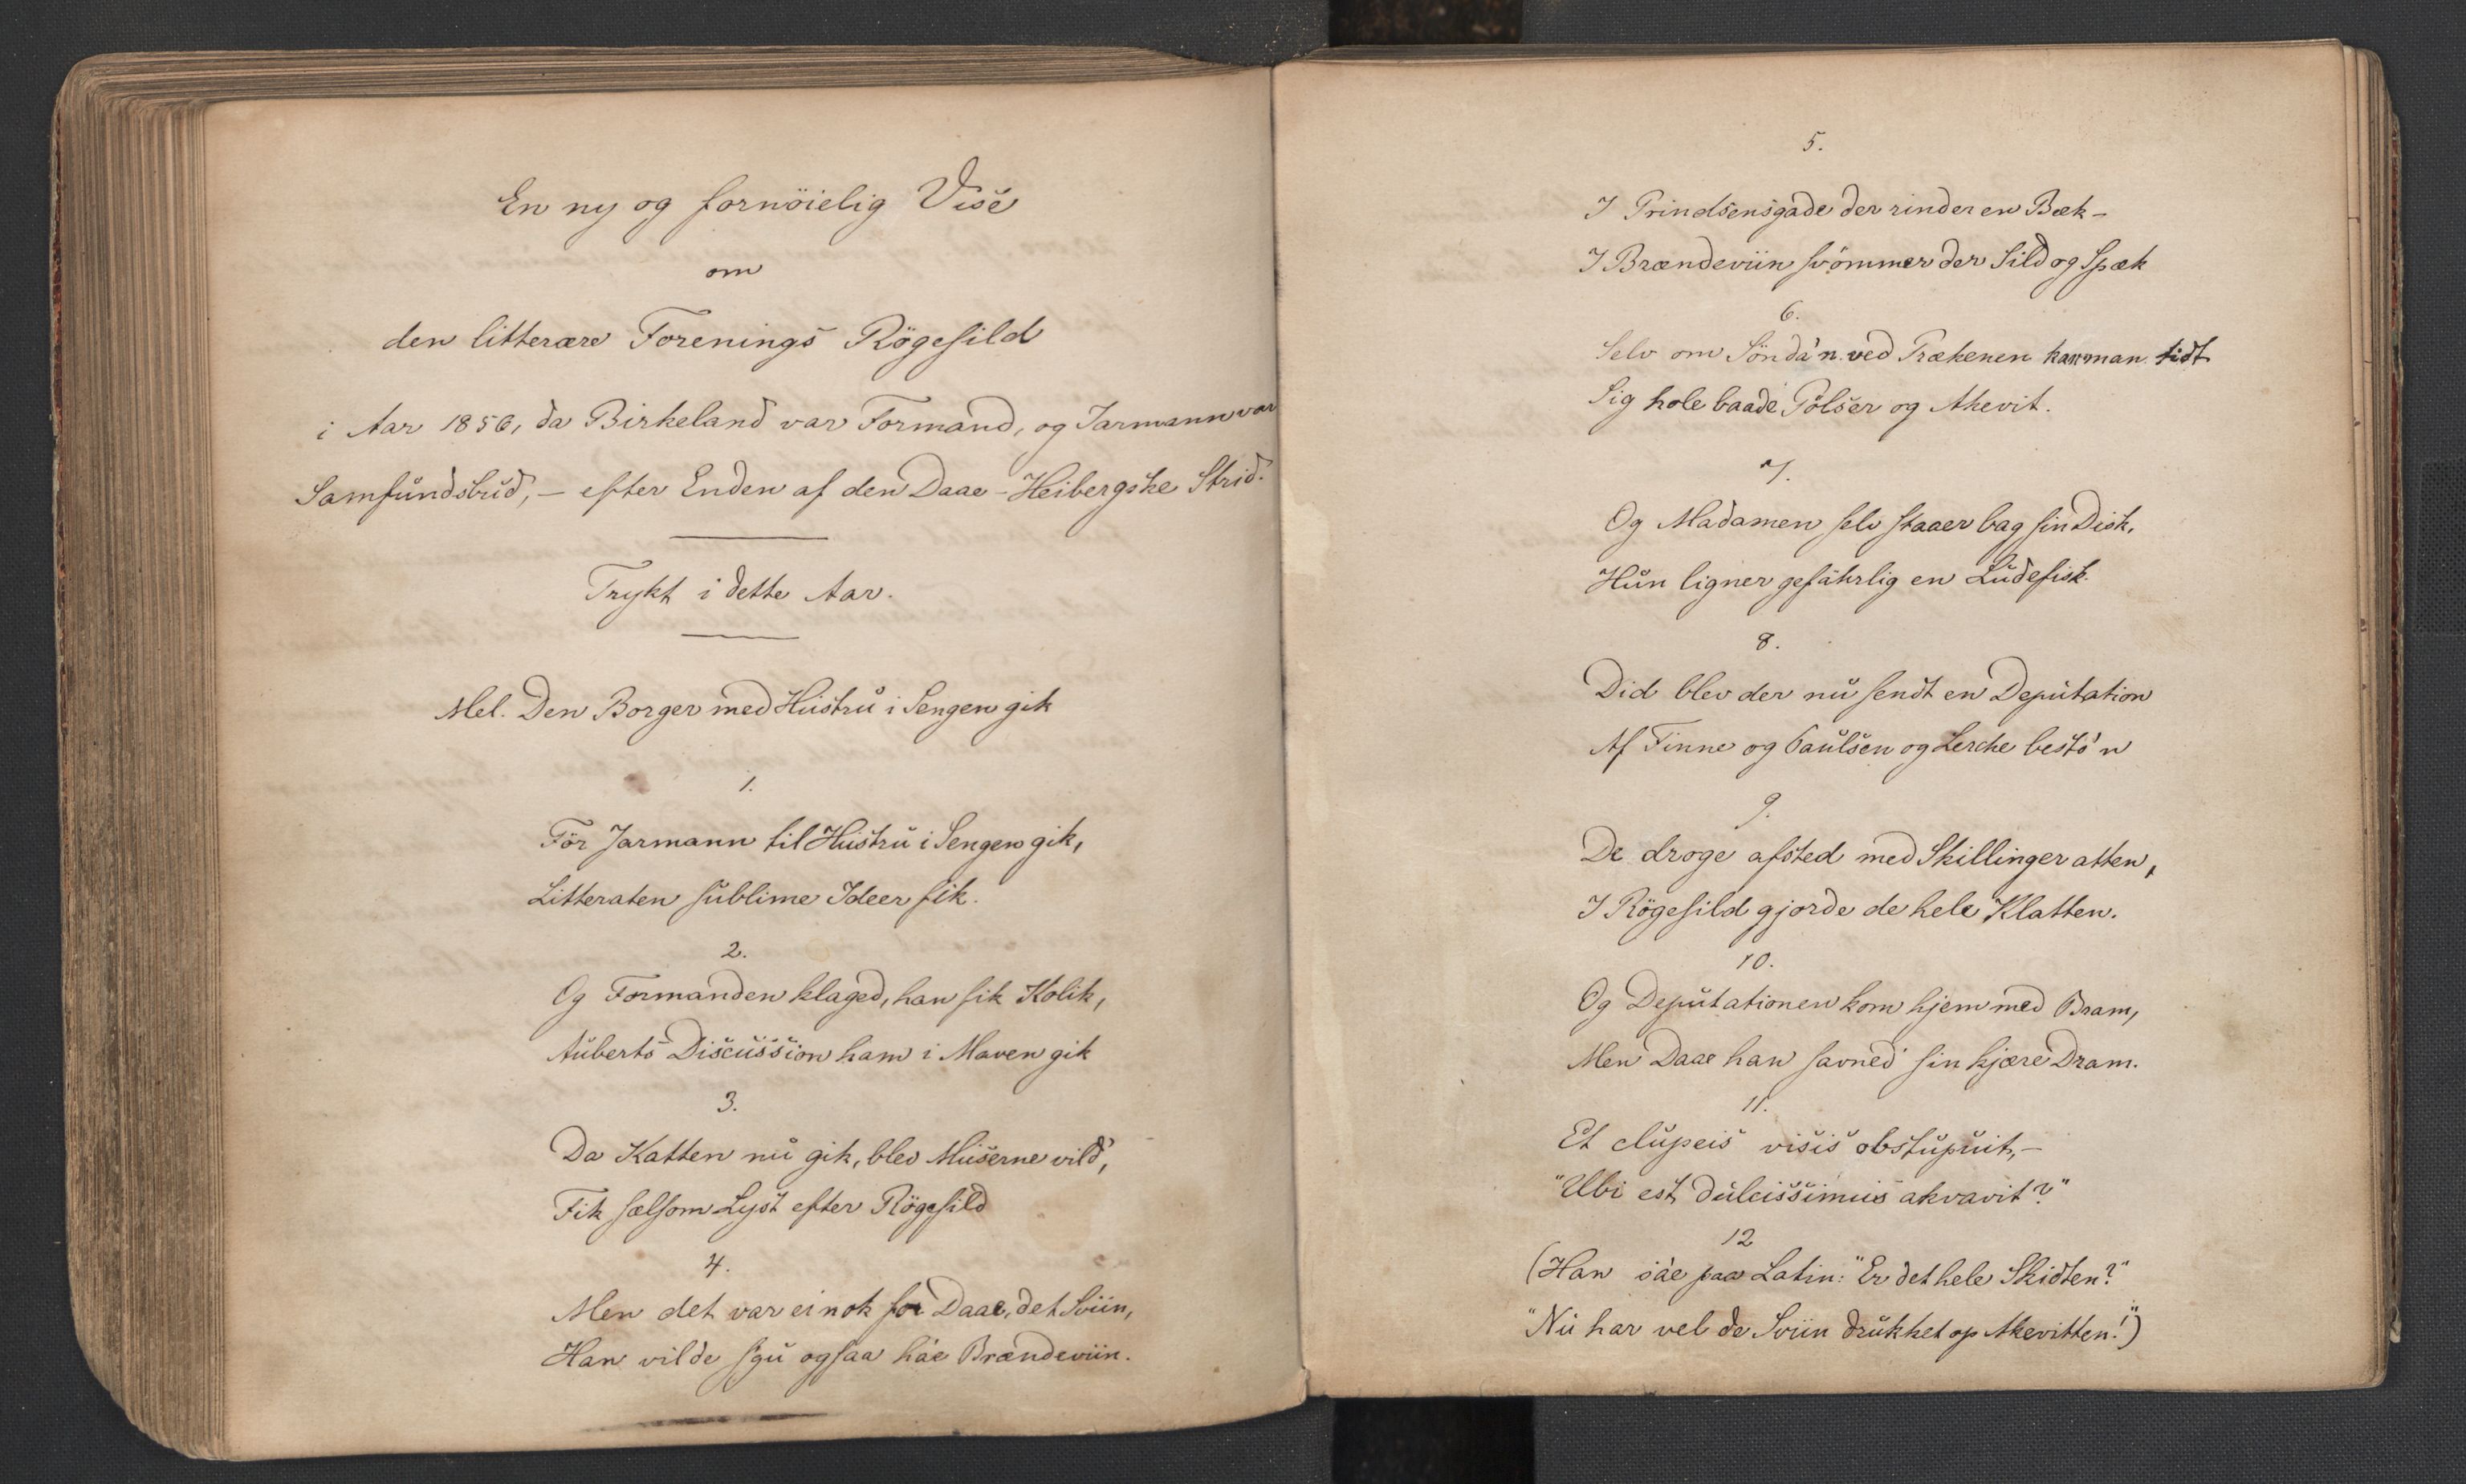 En ny og fornöielig Vise
om
den litterære Forenings Rögesild
i Aar 1856, da Birkeland var Formand, og Jarmann var
Samfundsbud, – efter Enden af den Daae-Heibergske Strid.
Trykt i dette Aar.
Mel. Den Borger med Hustru i Sengen gik
1.
För Jarmann til Hustru i Sengen gik,
Litteraten sublime Ideer fik.
2.
Og Formanden klaged, han fik Kolik,
Auberts Discussion ham i Maven gik
3.
Da Katten nu gik, blev Muserne vild',
Fik sælsom Lyst efter Rögesild
4.
Men det var ei nok for Daae, det Sviin,
Han vilde sgu ogsaa ha'e Brændeviin.
5.
I Prindsensgade der rinder en Bæk –
I Brændeviin svömmer der Sild og Spæk
6.
Selv om Sönda'n ved Prækenen kan man tidt
Sig hole baade Pölser og Akevit.
7.
Og Madamen selv staaer bag sin Disk,
Hun ligner gefährlig en Ludefisk.
8.
Did blev der nu sendt en Deputation
Af Finne og Paulsen og Lerche bestö'n
9.
De droge afsted med Skillinger atten,
I Rögesild gjorde de hele Klatten.
10.
Og Deputationen kom hjem med Bram,
Men Daae han savned' sin kjære Dram.
11.
Et clupeis visis obstupuit, –
"Ubi est dulcissimus akvavit?"
12
(Han sa'e paa Latin: "Er det hele Skidten?"
"Nu har vel de Sviin drukket op Akevitten!")